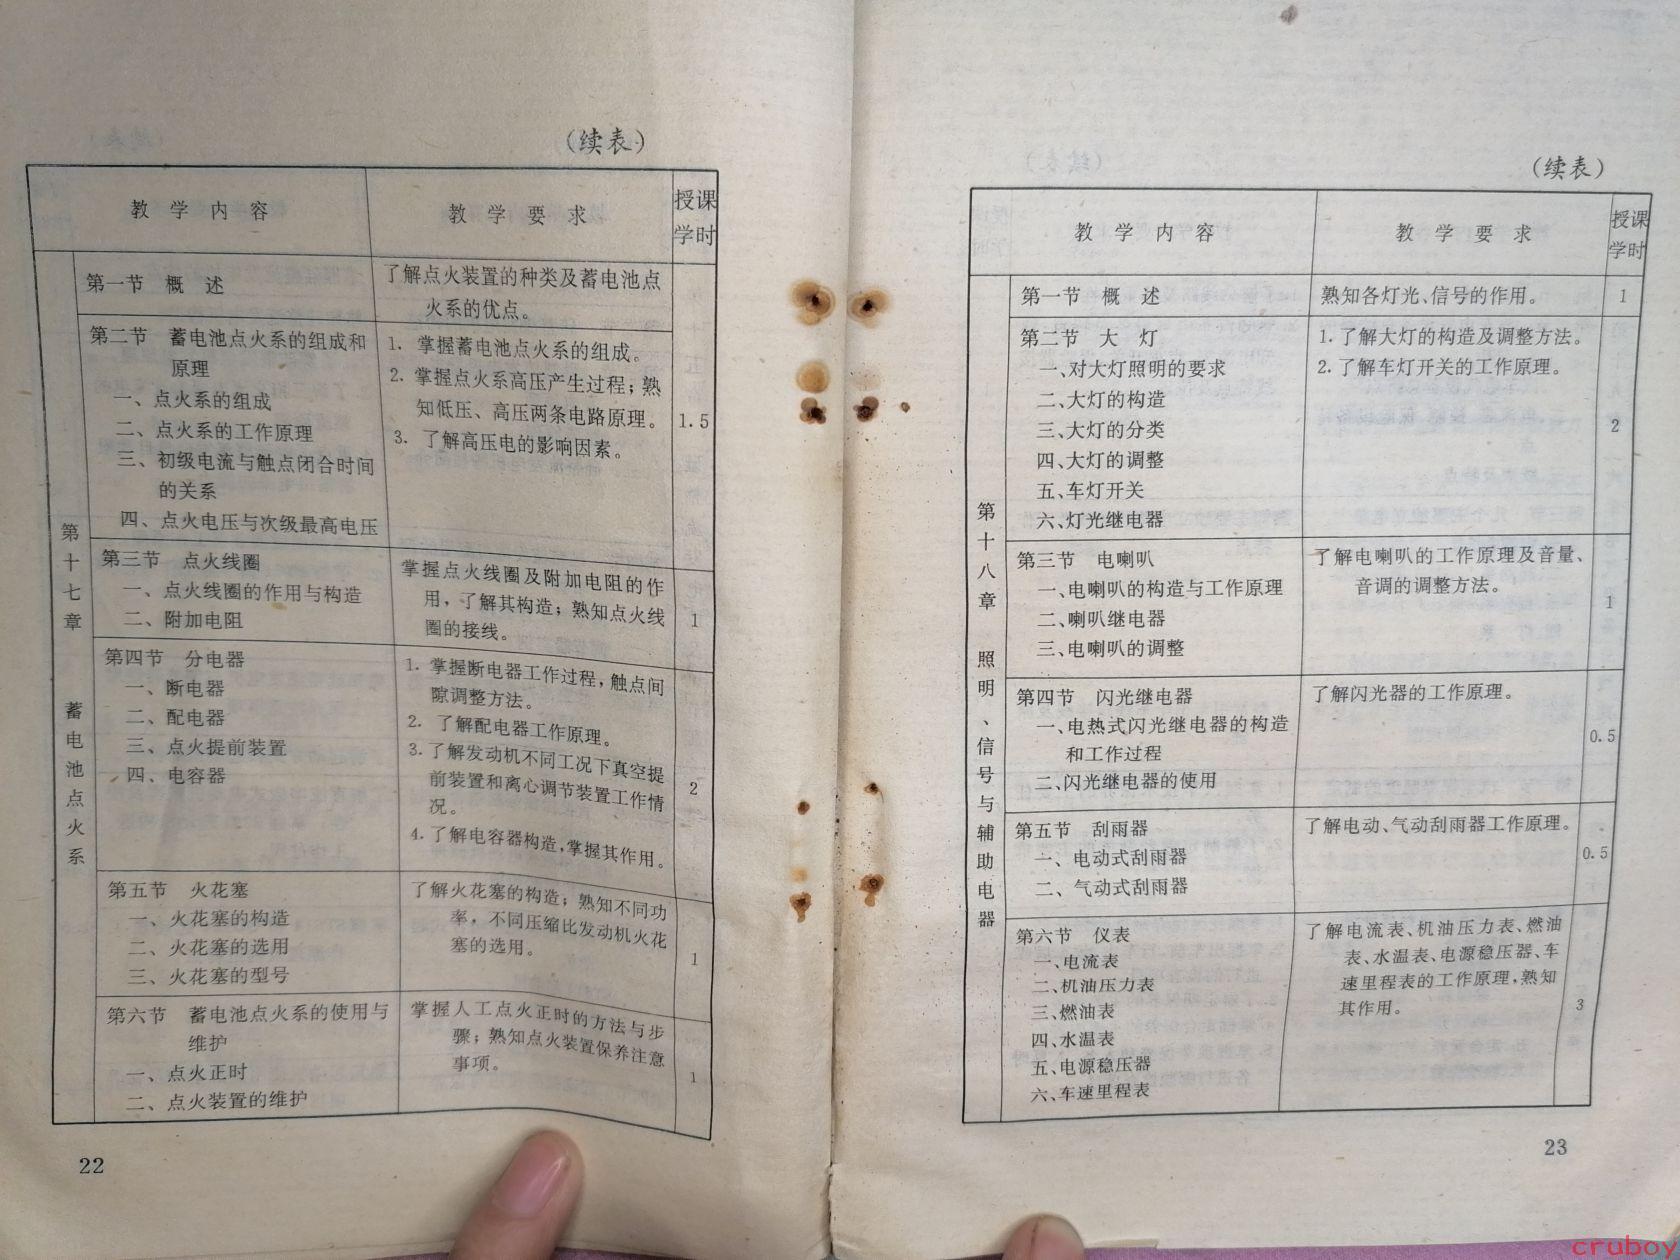 (续表)
教学内容 教学要求 授课
学时
第十七章 蓄电池点火系
第一节 概述
了解点火装置的种类及蓄电池点
火系的优点。
第二节 蓄电池点火系的组成和
原理
一、点火系的组成
二、点火系的工作原理
三、初级电流与触点闭合时间
的关系
四、点火电压与次级最高电压
1. 掌握蓄电池点火系的组成。
2. 掌握点火系高压产生过程;熟
知低压、高压两条电路原理。
3. 了解高压电的影响因素。
1.5
第三节 点火线圈
一、点火线圈的作用与构造
二、附加电阻
掌握点火线圈及附加电阻的作
用,了解其构造;熟知点火线
圈的接线。
1
第四节 分电器
一、断电器
二、配电器
三、点火提前装置
四、电容器
1. 掌握断电器工作过程,触点间
隙调整方法。
2. 了解配电器工作原理。
3. 了解发动机不同工况下真空提
前装置和离心调节装置工作情
况。
4. 了解电容器构造,掌握其作用。
2
第五节 火花塞
一、火花塞的构造
二、火花塞的选用
三、火花塞的型号
了解火花塞的构造;熟知不同功
率,不同压缩比发动机火花
塞的选用。
1
第六节 蓄电池点火系的使用与
维护
一、点火正时
二、点火装置的维护
掌握人工点火正时的方法与步
骤;熟知点火装置保养注意
事项。
1
22
(续表)
教学内容 教学要求 授课
学时
第十八章 照明、信号与辅助电器
第一节 概述
熟知各灯光、信号的作用。
1
第二节 大灯
一、对大灯照明的要求
二、大灯的构造
三、大灯的分类
四、大灯的调整
五、车灯开关
六、灯光继电器
1. 了解大灯的构造及调整方法。
2. 了解车灯开关的工作原理。
2
第三节 电喇叭
一、电喇叭的构造与工作原理
二、喇叭继电器
三、电喇叭的调整
了解电喇叭的工作原理及音量、
音调的调整方法。
1
第四节 闪光继电器
一、电热式闪光继电器的构造
和工作过程
二、闪光继电器的使用
了解闪光器的工作原理。
0.5
第五节 刮雨器
一、电动式刮雨器
二、气动式刮雨器
了解电动、气动刮雨器工作原理。
0.5
第六节 仪表
一、电流表
二、机油压力表
三、燃油表
四、水温表
五、电源稳压器
六、车速里程表
了解电流表、机油压力表、燃油
表、水温表、电源稳压器、车
速里程表的工作原理,熟知
其作用。
3
23
cruboy